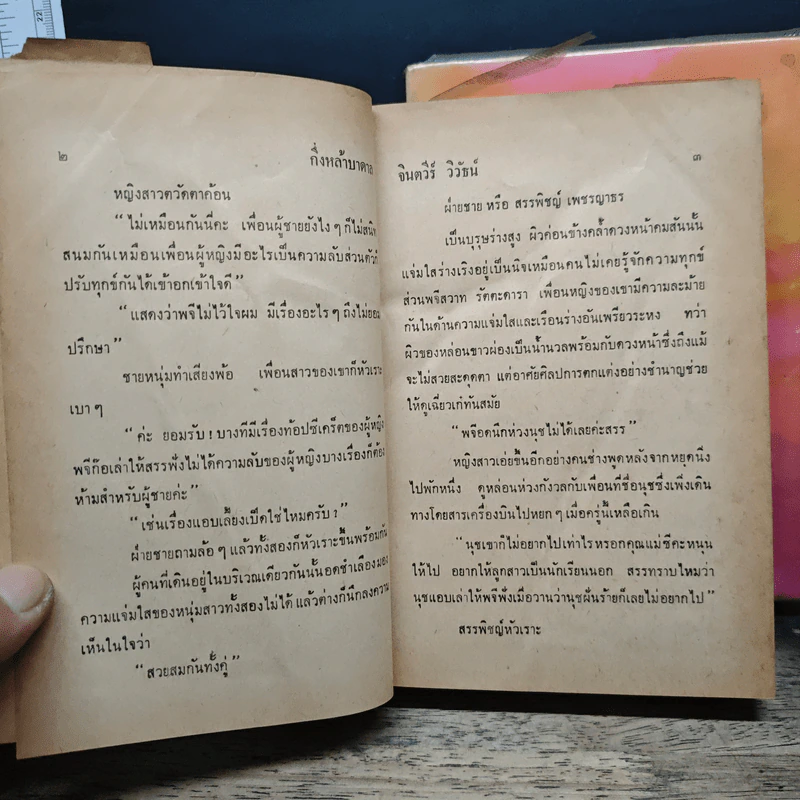 22
๒
กิ่งหล้าบาดาล
หญิงสาวตวัดตาค้อน
“ไม่เหมือนกันนี่คะ เพื่อนผู้ชายยังไง ๆ ก็ไม่สนิท
สนมกันเหมือนเพื่อนผู้หญิงมีอะไรเป็นความลับส่วนตัวก็
ปรับทุกข์กันได้เข้าอกเข้าใจดี”
“แสดงว่าพจีไม่ไว้ใจผม มีเรื่องอะไร ๆ ถึงไม่ยอม
ปรึกษา”
ชายหนุ่มทำเสียงพ้อ เพื่อนสาวของเขาก็หัวเราะ
เบา ๆ
“ค่ะ ยอมรับ ! บางทีมีเรื่องท้อปซีเคร็ตของผู้หญิง
พจีก็อเล่าให้สรรพั่งไม่ได้ความลับของผู้หญิงบางเรื่องก็ต้อง
ห้ามสำหรับผู้ชายค่ะ”
“เช่นเรื่องแอบเลี้ยงเป็ดใช่ไหมครับ ?”
ฝ่ายชายถามล้อ ๆ แล้วทั้งสองก็หัวเราะขึ้นพร้อมกัน
ผู้คนที่เดินอยู่ในบริเวณเดียวกันนั้นอดชำเลืองมอง
ความแจ่มใสของหนุ่มสาวทั้งสองไม่ได้ แล้วต่างก็นึกลงความ
เห็นในใจว่า
“สวยสมกันทั้งคู่”
จินตวีร์ วิวัธน์
๓
ฝ่ายชาย หรือ สรรพิชญ์ เพชรญาธร
เป็นบุรุษร่างสูง ผิวค่อนข้างคล้ำดวงหน้าคมสันนั้น
แจ่มใสร่างเริงอยู่เป็นนิจเหมือนคนไม่เคยรู้จักความทุกข์
ส่วนพจีสวาท รัตตะดารา เพื่อนหญิงของเขามีความละม้าย
กันในด้านความแจ่มใสและเรือนร่างอันเพรียวระหง ทว่า
ผิวของหล่อนขาวผ่องเป็นน้ำนวลพร้อมกับดวงหน้าซึ่งถึงแม้
จะไม่สวยสะดุดตา แต่อาศัยศิลปการตกแต่งอย่างชำนาญช่วย
ให้ดูเฉี่ยวเก๋ทันสมัย
“พจีอดนึกห่วงนุชไม่ได้เลยค่ะสรร”
หญิงสาวเอ่ยขึ้นอีกอย่างคนช่างพูดหลังจากหยุดนิ่ง
ไปพักหนึ่ง ดูหล่อนห่วงกังวลกับเพื่อนที่ชื่อนุชซึ่งเพิ่งเดิน
ทางโดยสารเครื่องบินไปหยก ๆ เมื่อครู่นี้เหลือเกิน
“นุชเขาก็ไม่อยากไปเท่าไรหรอกคุณแม่ซีคะหนุน
ให้ไป อยากให้ลูกสาวเป็นนักเรียนนอก สรรทราบไหมว่า
นุชแอบเล่าให้พจีฟังเมื่อวานว่านุชฝันร้ายก็เลยไม่อยากไป”
สรรพิชญ์หัวเราะ